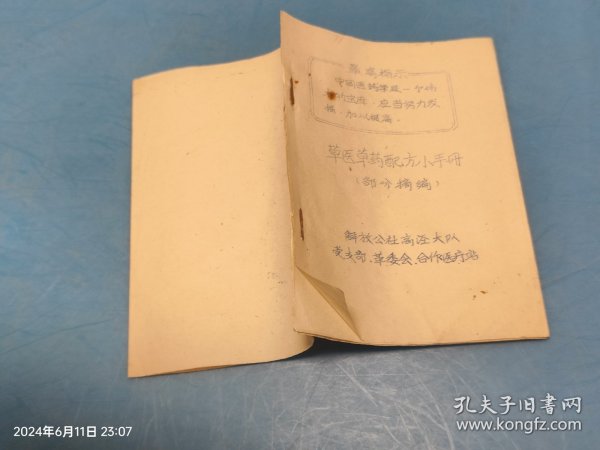 最高指示
中国医药学是一个伟
大的宝库，应当努力发
掘，加以提高。
草医草药配方小手册
（部分摘编）
解放公社高泾大队
党支部、革委会、合作医疗站
2024年6月11日 23:07
孔夫子旧书网
www.kongfz.com